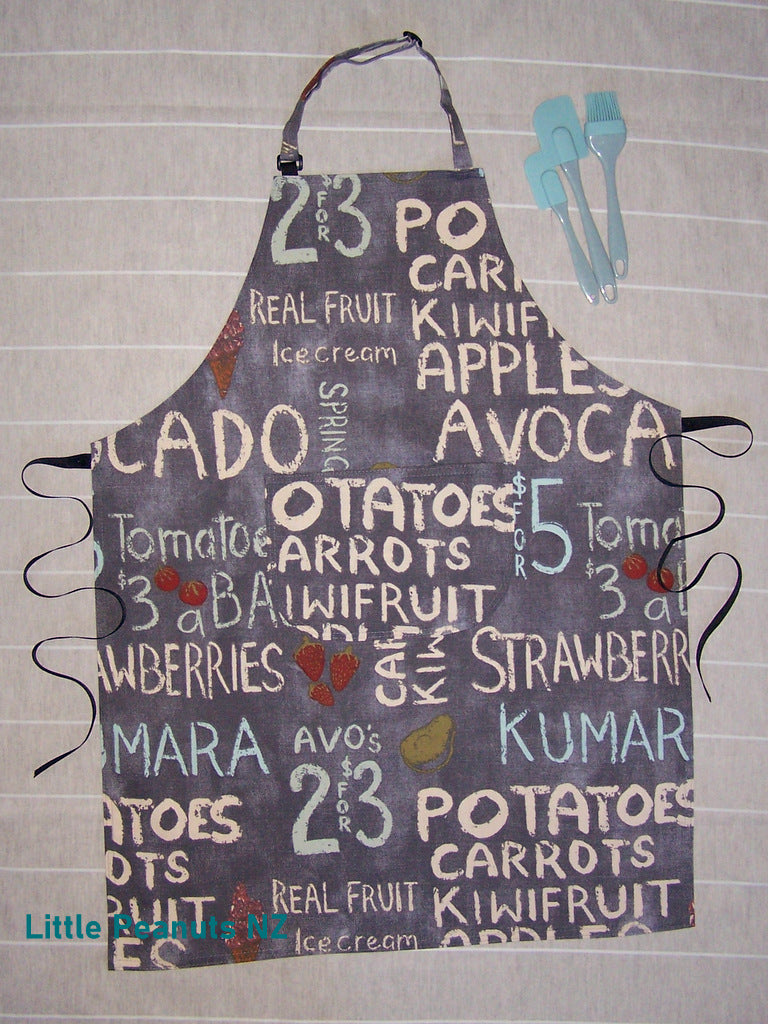 2 $ FOR 3
PO
CAR
KIWIF
APPLE
REAL FRUIT
Ice cream
SPRING
CADO
AVOCA
POTATOES
ARROTS
IWIFRUIT
$ FOR 5
Tomatoe
$3 a BA
Toma
$3 a
AWBERRIES
CAR
KIW
STRAWBERR
MARA
AVO's
2 $ FOR 3
KUMAR
ATOES
OTS
UIT
ES
POTATOES
CARROTS
KIWIFRUIT
APPLES
REAL FRUIT
Ice cream
Little Peanuts NZ